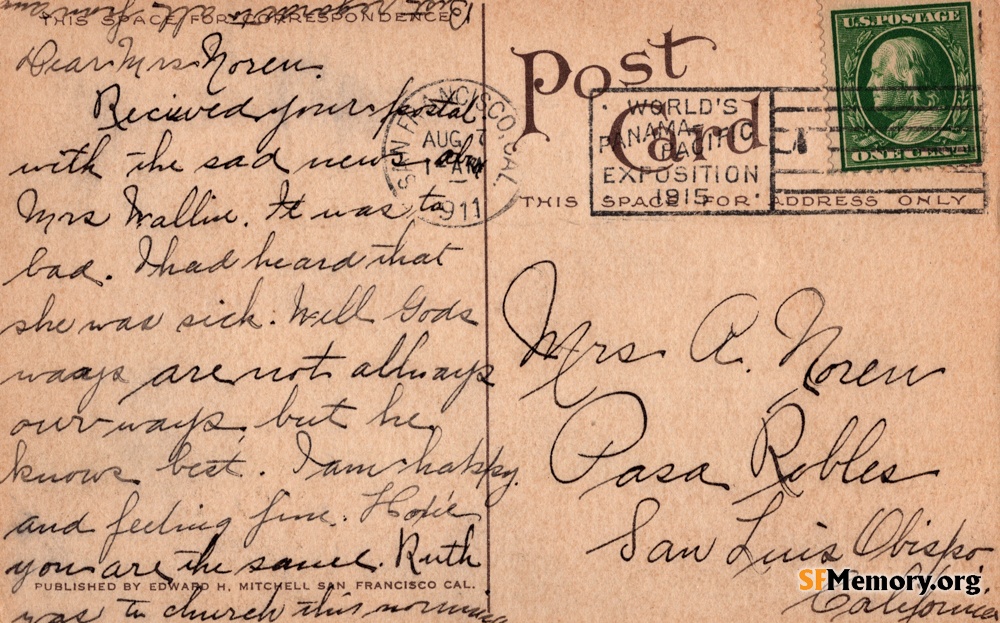 THIS SPACE FOR CORRESPONDENCE
Best regards to all from
Dear Mrs Noren.
Recieved your postal
with the sad news of
Mrs Wallin. It was to
bad. I had heard that
she was sick. Well Gods
ways are not allways
our ways, but he
knows best. I am happy
and feeling fine. Hope
you are the same. Ruth
PUBLISHED BY EDWARD H. MITCHELL SAN FRANCISCO CAL.
was to church this morning
Post
Card
SAN FRANCISCO, CAL.
AUG 7
1 - AM
1911
WORLD'S
PANAMA-PACIFIC
EXPOSITION
1915
U.S. POSTAGE
ONE CENT
THIS SPACE FOR ADDRESS ONLY
Mrs A. Noren
Pasa Robles
San Luis Obispo
California
SFMemory.org